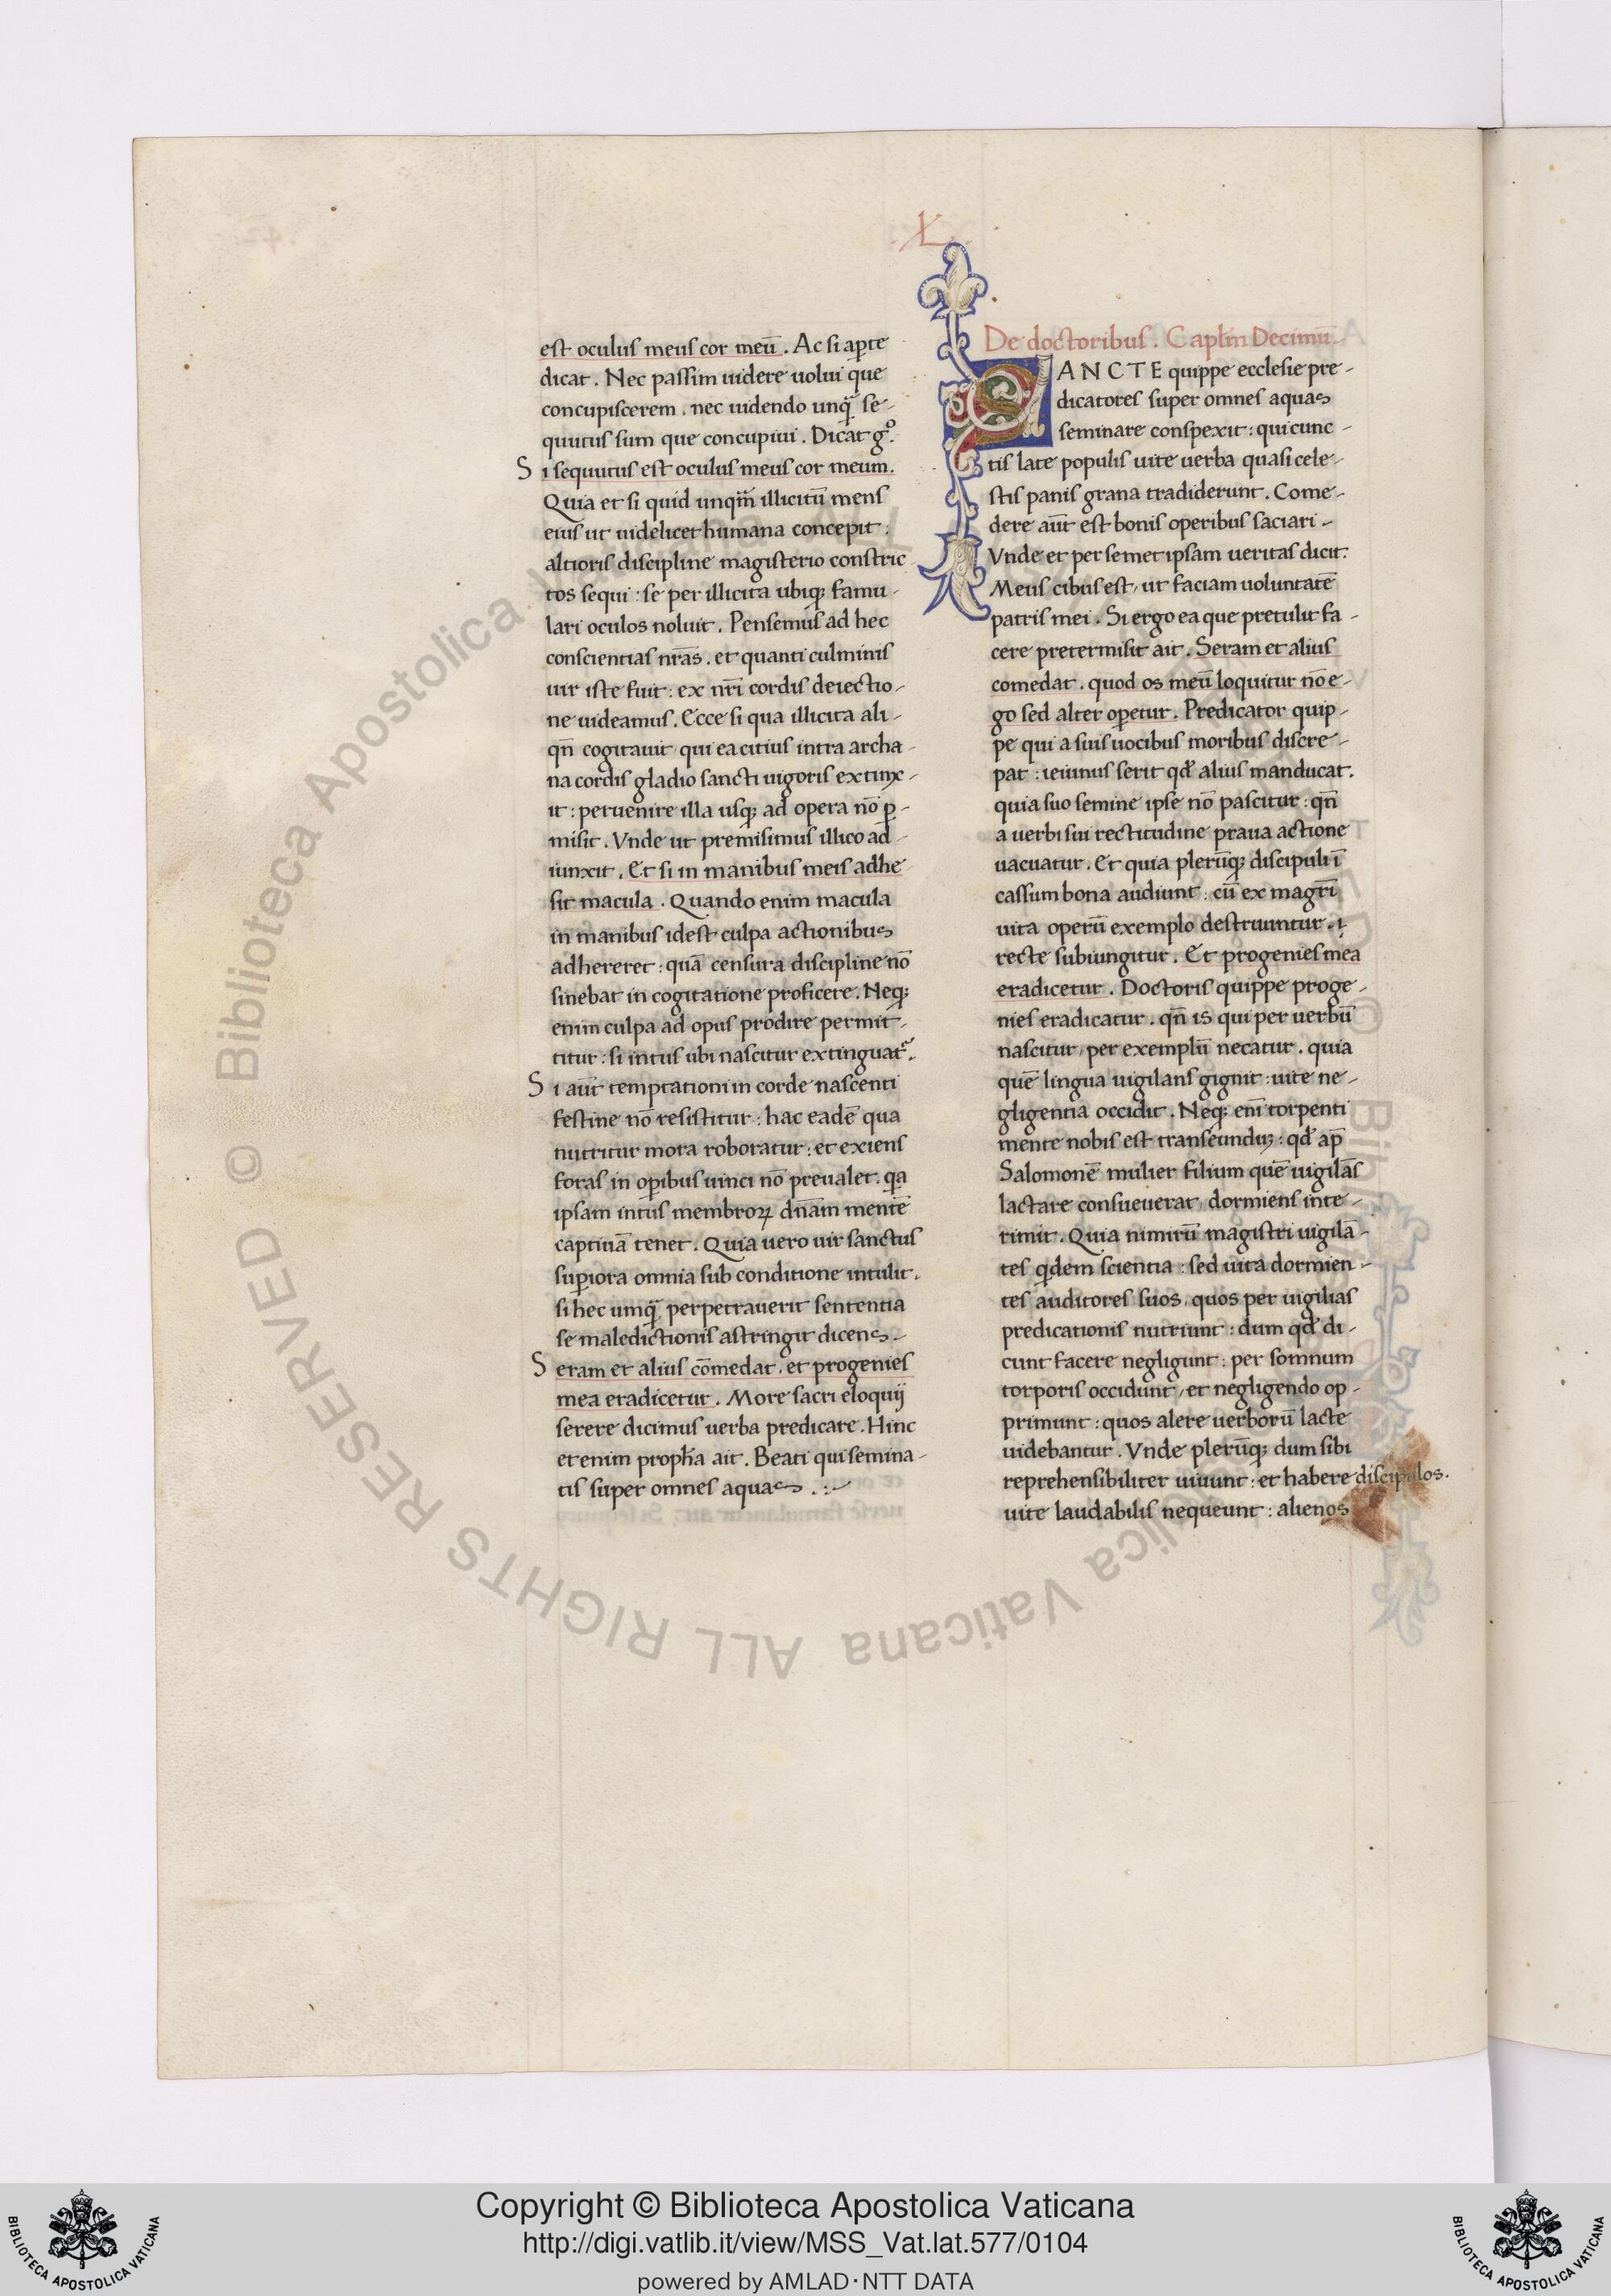 .X.
est oculus meus cor meū. Ac si aꝑte
dicat. Nec passim uidere uolui que
concupiscerem. nec uidendo unqᷓ se-
quutus sum que concupiui. Dicat gͦ.
Si sequutus est oculus meus cor meum.
Quia et si quid unqᷓm illicitū mens
eius ut uidelicet humana concepit:
altioris discipline magisterio constric
tos sequi: se per illicita ubiqꝫ famu-
lari oculos noluit. Pensemus ad hec
conscientias nr̄as. et quanti culminis
uir iste fuit: ex nr̄i cordis deiectio-
ne uideamus. Ecce si qua illicita ali-
qn̄ cogitauit qui ea citius intra archa-
na cordis gladio sancti uigoris extinx-
it: peruenire illa usqꝫ ad opera nō ꝑ-
misit. Vnde ut premisimus illico ad-
iunxit. Et si in manibus meis adhe-
sit macula. Quando enim macula
in manibus idest culpa actionibus
adhereret: quā censura discipline nō
sinebat in cogitatione proficere. Neqꝫ
enim culpa ad opus prodire permit-
titur: si intus ubi nascitur extinguat᷑.
Si aūt temptationi in corde nascenti
festine nō resistitur: hac eadē qua
nutritur mora roboratur: et exiens
foras in oꝑibus uinci nō preualet. qa
ipsam intus membroꝝ dn̄am mentē
captiuā tenet. Quia uero uir sanctus
suꝑiora omnia sub conditione intulit.
si hec umqᷓ perpetrauerit sententia
se maledictionis astringit dicens.-
Seram et alius cōmedat. et progenies
mea eradicetur. More sacri eloquij
serere dicimus uerba predicare. Hinc
etenim propħa ait. Beati qui semina-
tis super omnes aquas .:-
De doctoribus. Capłm Decimū.
SANCTE quippe ecclesie pre-
dicatores super omnes aquas
seminare conspexit: qui cunc-
tis late populis uite uerba quasi cele-
stis panis grana tradiderunt. Come-
dere aūt est bonis operibus saciari-
Vnde et per semet ipsam ueritas dicit.
Meus cibus est, ut faciam uoluntatē
patris mei. Si ergo ea que pretulit fa-
cere pretermisit ait. Seram et alius
comedat. quod os meū loquitur nō e-
go sed alter oꝑetur. Predicator quip-
pe qui a suis uocibus moribus discre-
pat: ieiunus serit qđ alius manducat.
quia suo semine ipse nō pascitur: qn̄
a uerbi sui rectitudine praua actione
uacuatur. Et quia plerūqꝫ discipuli ī
cassum bona audiunt: cū ex magr̄i
uita operū exemplo destruuntur.
recte subiungitur. Et progenies mea
eradicetur. Doctoris quippe proge-
nies eradicatur. qn̄ is qui per uerbū
nascitur, per exemplū necatur. quia
quē lingua uigilans gignit: uite ne-
gligentia occidit. Neqꝫ enī torpenti
mente nobis est transeundūꝫ: qđ ap̄
Salomonē mulier filium quē uigilās
lactare consueuerat, dormiens inte-
rimit. Quia nimirū magistri uigilā-
tes qdem scientia: sed uita dormien-
tes auditores suos, quos per uigilias
predicationis nutriunt: dum qđ di-
cunt facere negligunt: per somnum
torporis occidunt, et negligendo op-
primunt: quos alere uerborū lacte
uidebantur. Vnde plerūqꝫ dum sibi
reprehensibiliter uiuunt: et habere discipulos.
uite laudabilis nequeunt: alienos
© Biblioteca Apostolica Vaticana ALL RIGHTS RESERVED
Copyright © Biblioteca Apostolica Vaticana
http://digi.vatlib.it/view/MSS_Vat.lat.577/0104
powered by AMLAD·NTT DATA
BIBLIOTECA APOSTOLICA VATICANA
BIBLIOTECA APOSTOLICA VATICANA